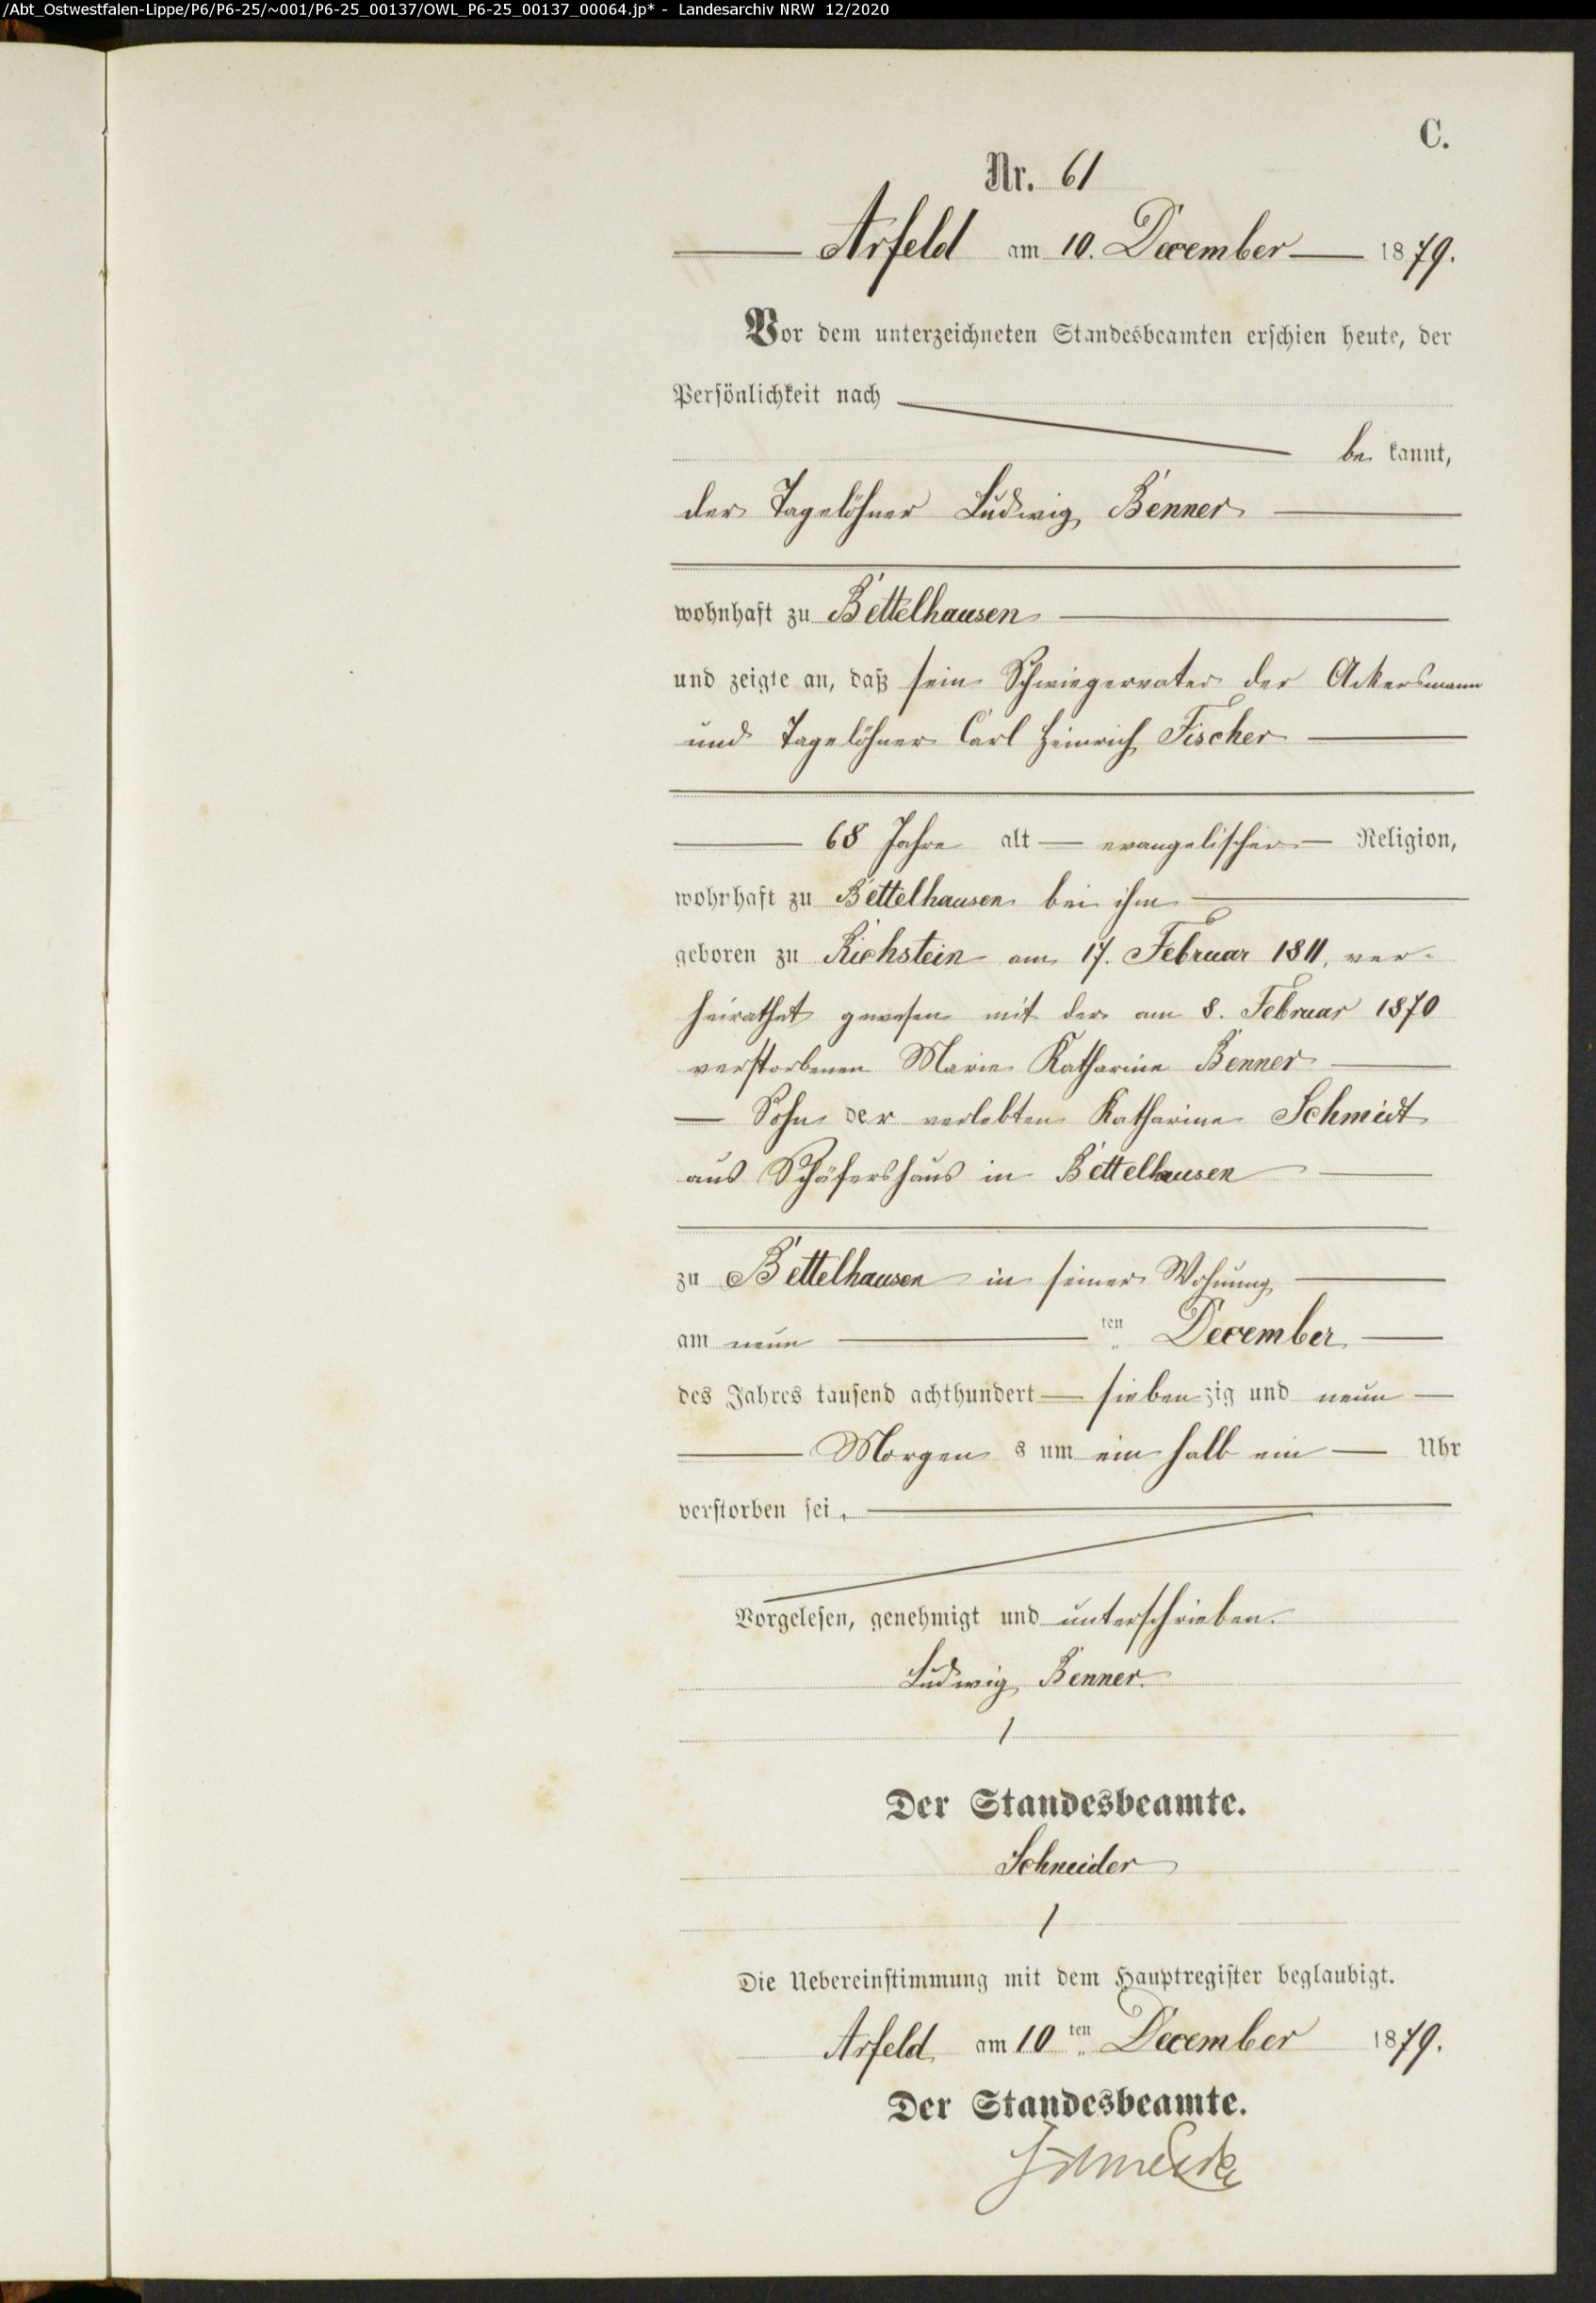 /Abt_Ostwestfalen-Lippe/P6/P6-25/~001/P6-25_00137/OWL_P6-25_00137_00064.jp* - Landesarchiv NRW 12/2020
C.
Nr. 61
Arfeld am 10. December 1879.
Vor dem unterzeichneten Standesbeamten erschien heute, der
Persönlichkeit nach
be kannt,
der Tagelöhner Ludwig Benner
wohnhaft zu Bettelhausen
und zeigte an, daß sein Schwiegervater der Ackersmann
und Tagelöhner Carl Heinrich Fischer
68 Jahre alt evangelischer Religion,
wohnhaft zu Bettelhausen bei ihm
geboren zu Richstein am 17. Februar 1811, ver-
heirathet gewesen mit der am 8. Februar 1870
verstorbenen Marie Katharine Benner
Sohn der verlebten Katharine Schmidt
aus Schäfershaus in Bettelhausen
zu Bettelhausen in seiner Wohnung
am neun ten December
des Jahres tausend achthundert sieben zig und neun
Morgen s um ein halb ein Uhr
verstorben sei.
Vorgelesen, genehmigt und unterschrieben.
Ludwig Benner.
Der Standesbeamte.
Schneider
Die Uebereinstimmung mit dem Hauptregister beglaubigt.
Arfeld am 10 ten December 1879.
Der Standesbeamte.
Schneider